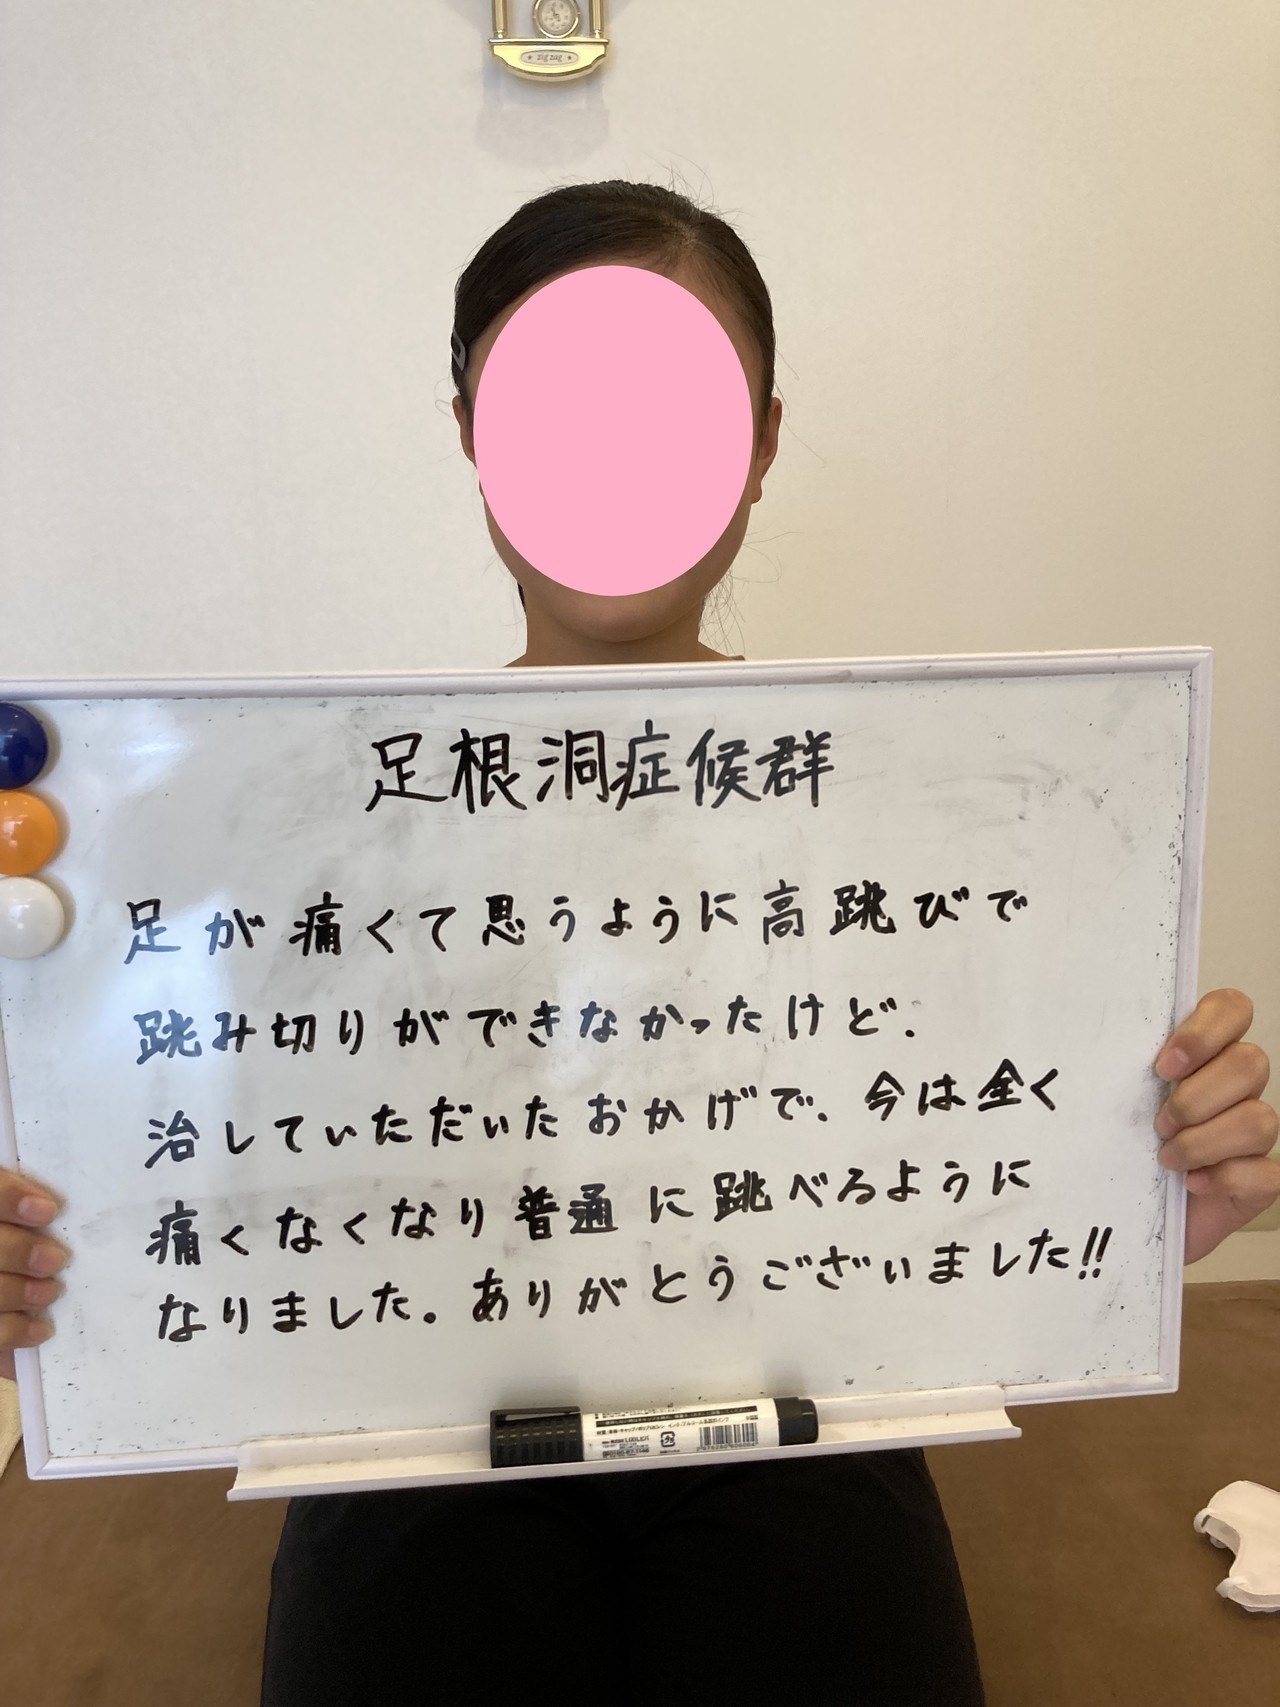 zig zag
足根洞症候群
足が痛くて思うように高跳びで
跳み切りができなかったけど、
治していただいたおかげで、今は全く
痛くなくなり普通に跳べるように
なりました。ありがとうございました!!